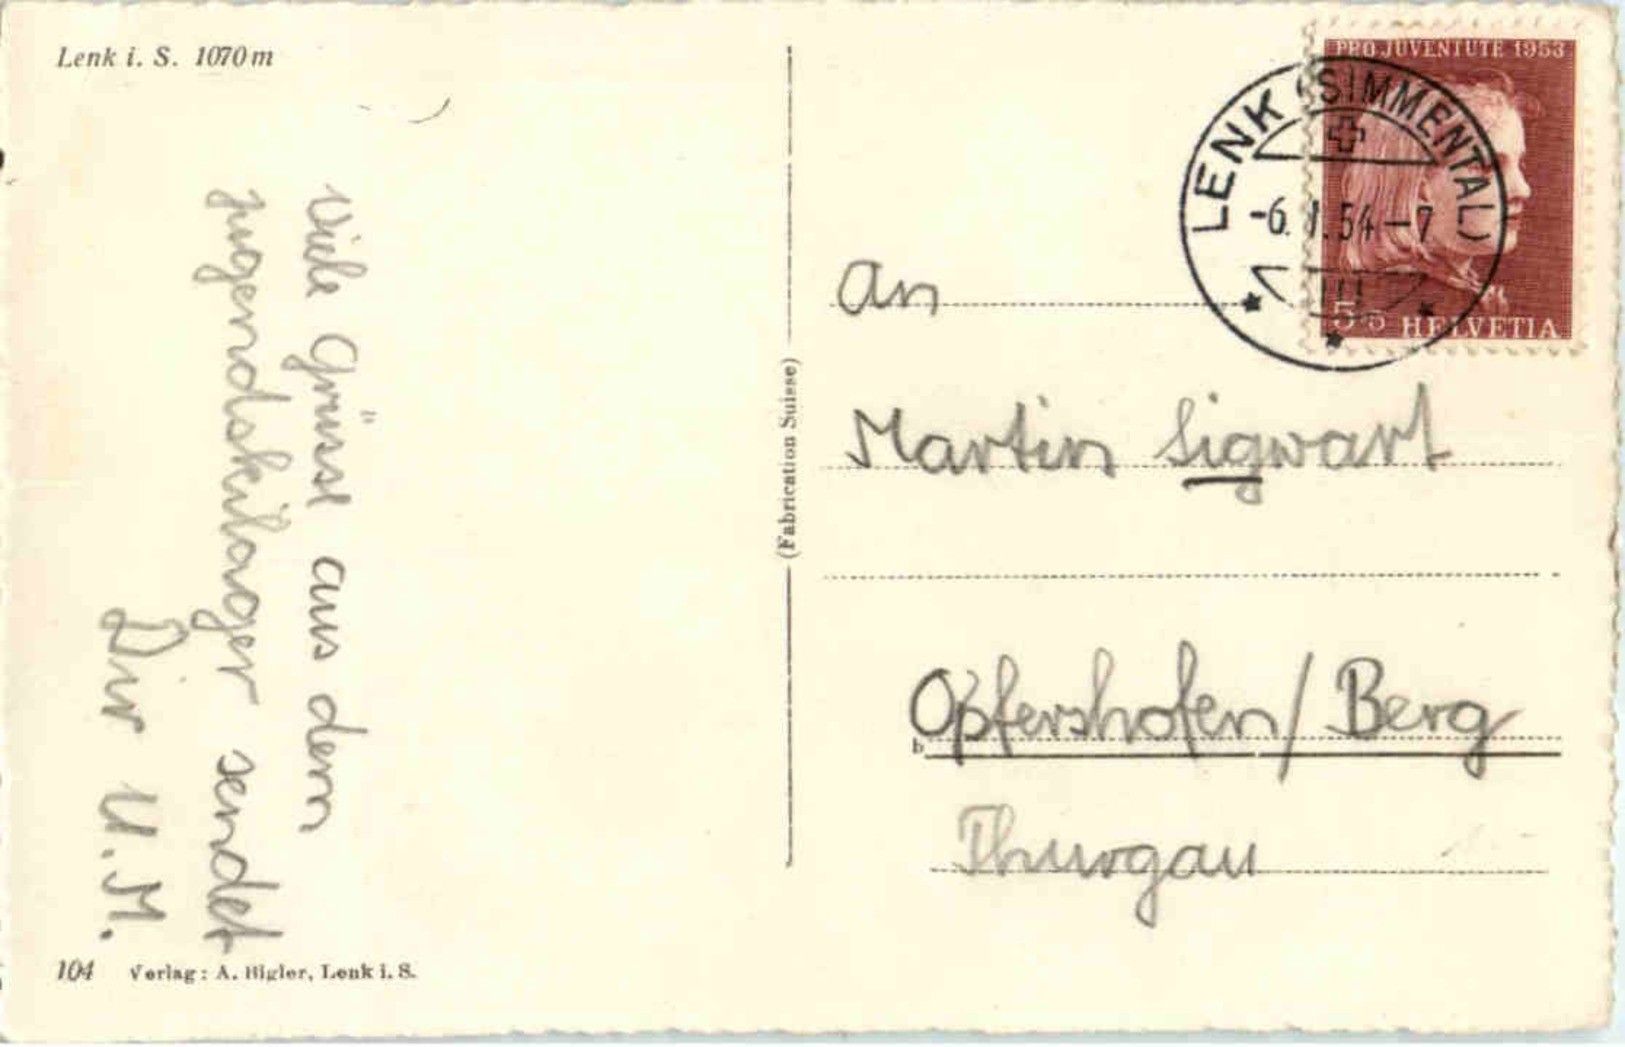 Lenk i. S. 1070 m
Viele Grüsse aus dem
Jugendskilager sendet
Dir U.M.
104 Verlag: A. Bigler, Lenk i. S.
(Fabrication Suisse)
PRO JUVENTUTE 1953
5+5 HELVETIA
LENK (SIMMENTAL)
-6. I. 54-7
An
Martin Sigwart
Opfershofen / Berg
Thurgau